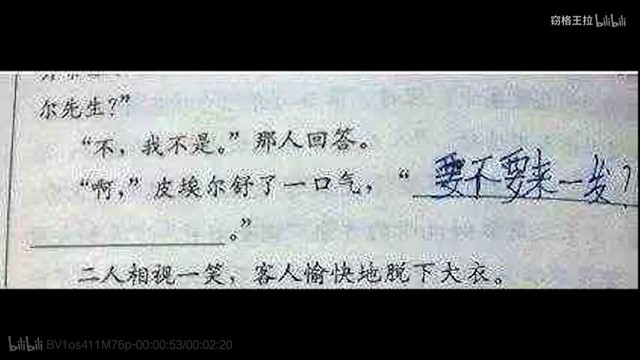 窃格王拉 bilibili
尔先生?”
“不,我不是。”那人回答。
“啊,”皮埃尔舒了一口气,“要不要来一发?
。”
二人相视一笑,客人愉快地脱下大衣。
bilibili BV1os411M76p-00:00:53/00:02:20